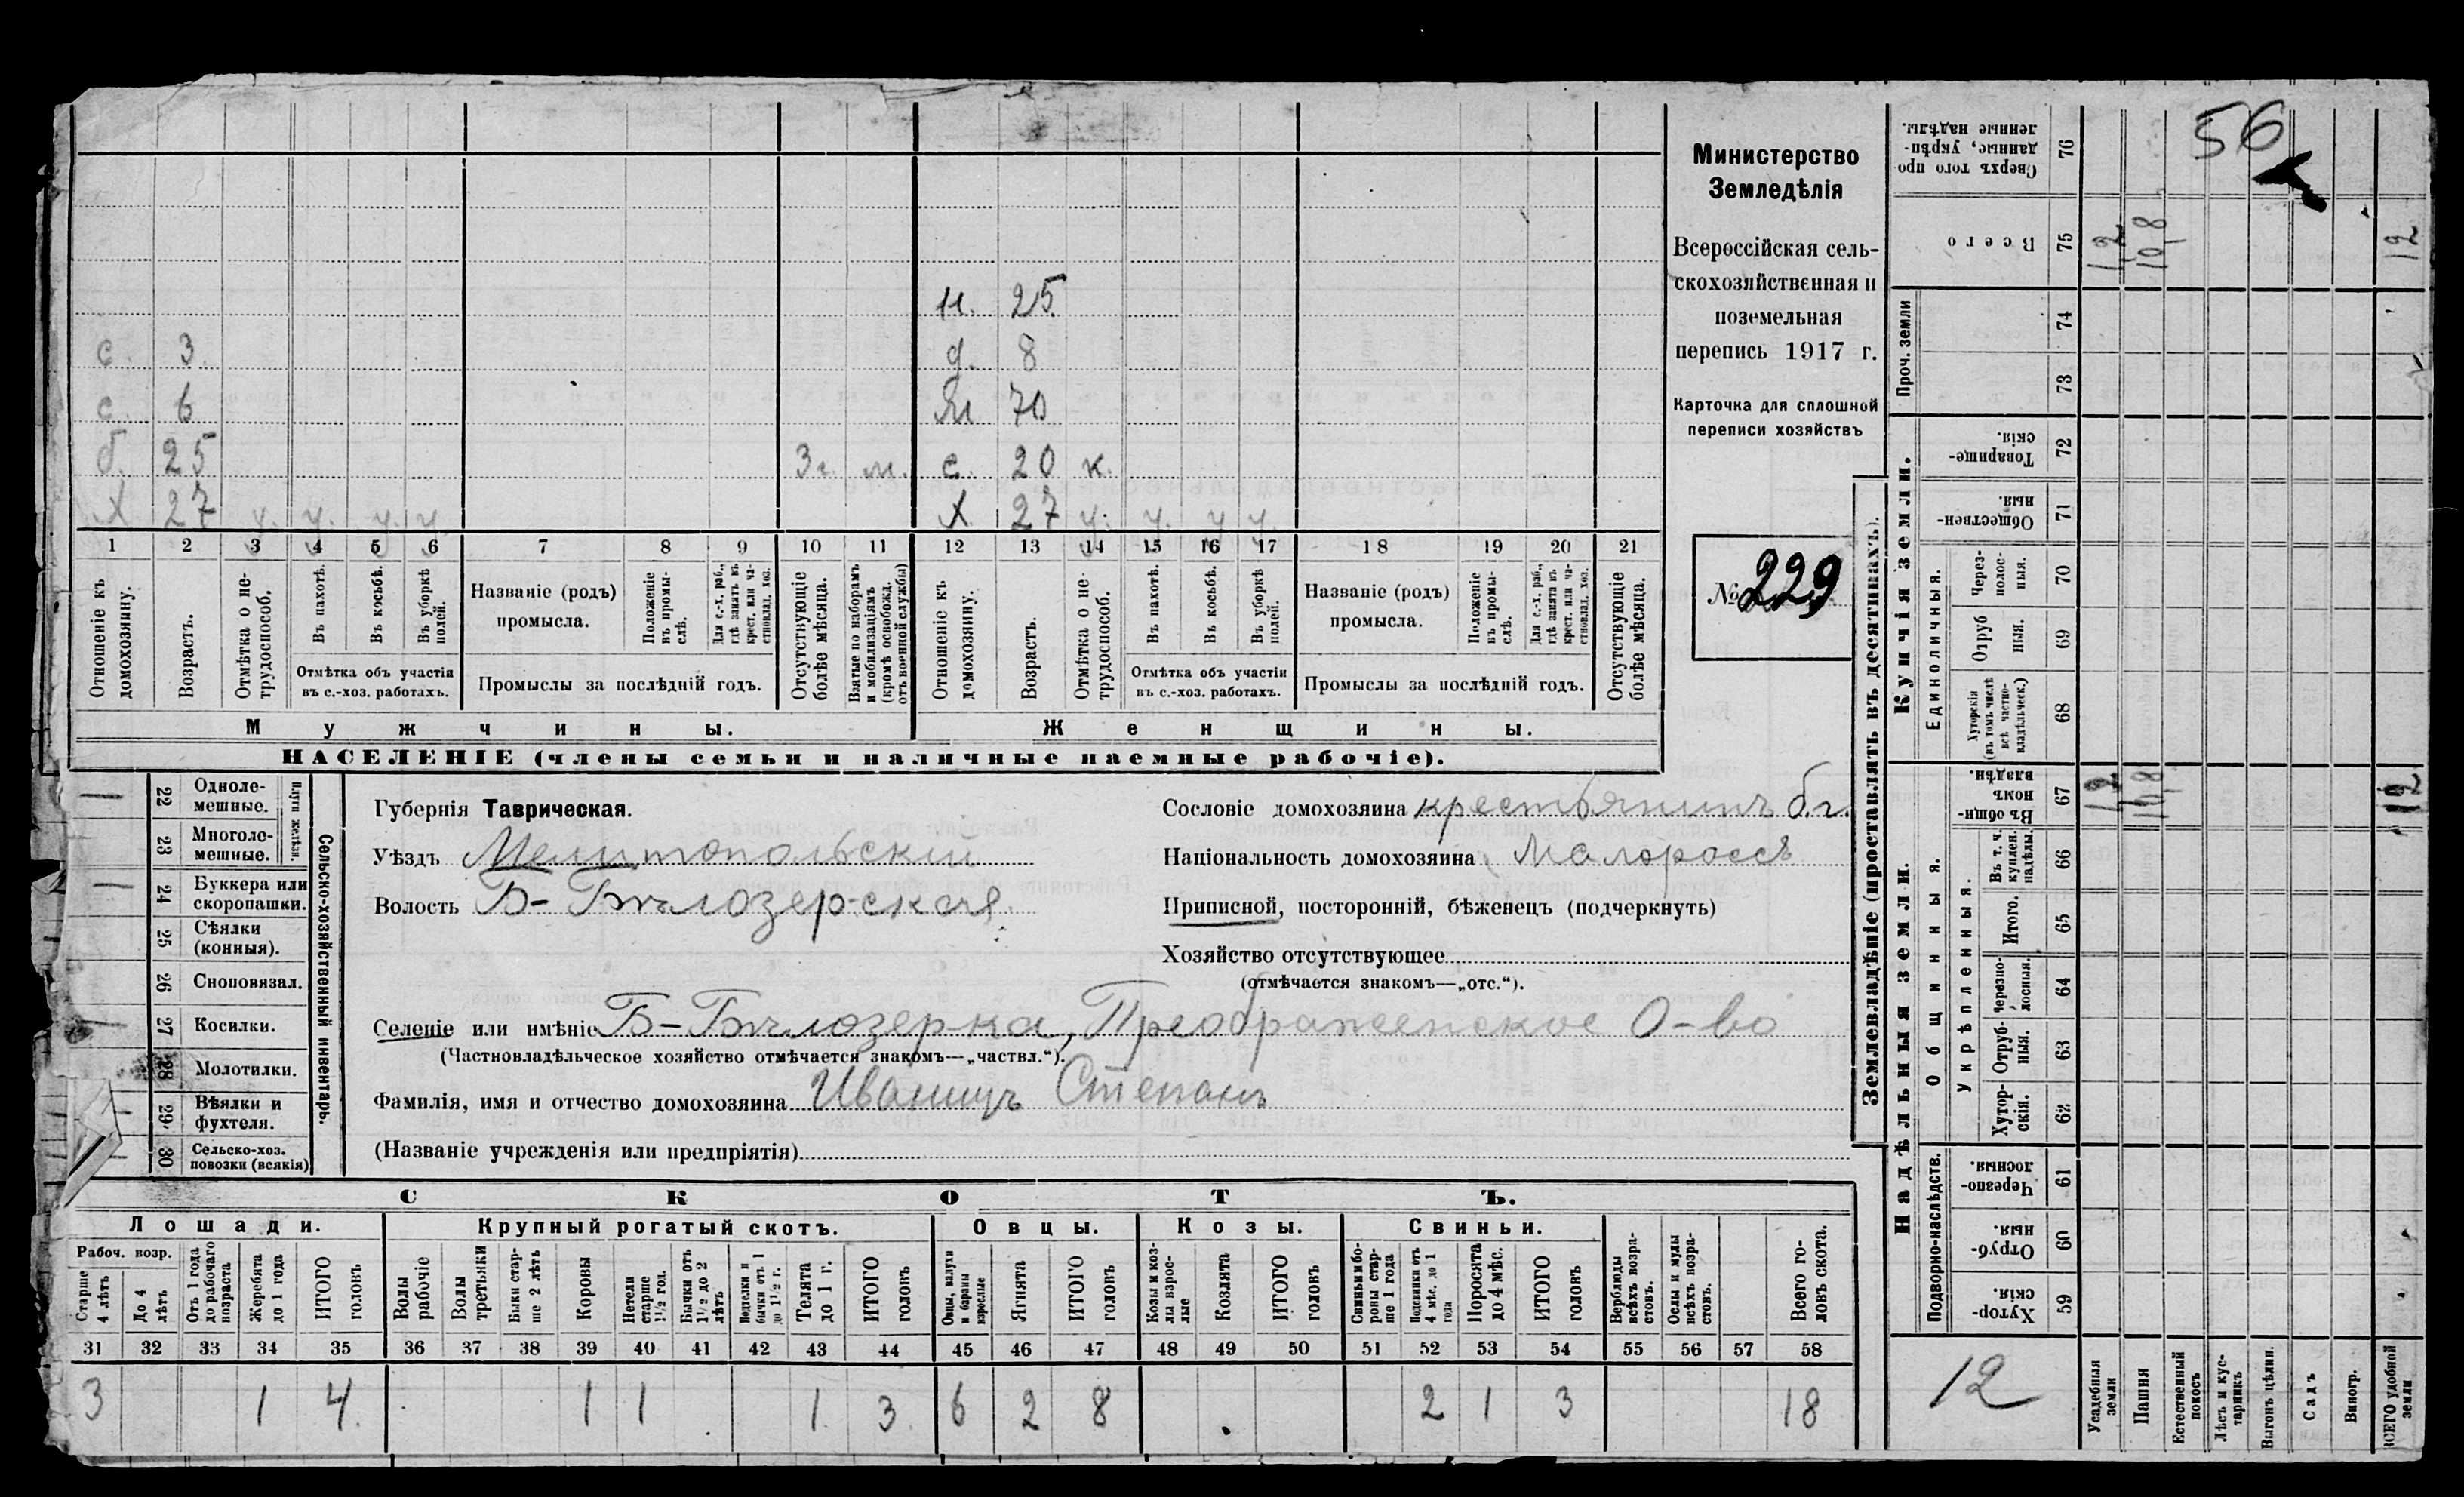 с. 3.
с. 6
б. 25 3г. м.
Х 27 у. у. у. у
н. 25.
д. 8
М 70
с. 20 к.
Х 27 у. у. у у.
1 2 3 4 5 6 7 8 9 10 11 12 13 14 15 16 17 18 19 20 21
Отношеніе къ домохозяину.
Возрастъ.
Отмѣтка о нетрудоспособ.
Въ пахотѣ.
Въ косьбѣ.
Въ уборкѣ полей.
Отмѣтка объ участіи въ с.-хоз. работахъ.
Названіе (родъ) промысла.
Положеніе въ промыслѣ.
Для с.-х. раб., гдѣ занятъ въ крест. или частновлад. хоз.
Промыслы за послѣдній годъ.
Отсутствующіе болѣе мѣсяца.
Взятые по наборамъ и мобилизаціямъ (кромѣ освобожд. отъ военной службы)
Отношеніе къ домохозяину.
Возрастъ.
Отмѣтка о нетрудоспособ.
Въ пахотѣ.
Въ косьбѣ.
Въ уборкѣ полей.
Отмѣтка объ участіи въ с.-хоз. работахъ.
Названіе (родъ) промысла.
Положеніе въ промыслѣ.
Для с.-х. раб., гдѣ занята въ крест. или частновлад. хоз.
Промыслы за послѣдній годъ.
Отсутствующіе болѣе мѣсяца.
Мужчины. Женщины.
НАСЕЛЕНІЕ (члены семьи и наличные наемные рабочіе).
Министерство
Земледѣлія
Всероссійская сель-
скохозяйственная и
поземельная
перепись 1917 г.
Карточка для сплошной
переписи хозяйствъ
№ 229
22 Одноле-мешные.
23 Многоле-мешные.
Плуги желѣзн.
24 Буккера или скоропашки.
25 Сѣялки (конныя).
26 Сноповязал.
27 Косилки.
28 Молотилки.
29 Вѣялки и фухтеля.
30 Сельско-хоз. повозки (всякія)
Сельско-хозяйственный инвентарь.
Губернія Таврическая.
Уѣздъ Мелитопольскій
Волость Б-Бѣлозерская
Сословіе домохозяина крестьянинъ б.г.
Національность домохозяина Малороссъ
Приписной, посторонній, бѣженецъ (подчеркнуть)
Хозяйство отсутствующее
(отмѣчается знакомъ—„отс.“).
Селеніе или имѣніе Б-Бѣлозерка, Преображенское О-во
(Частновладѣльческое хозяйство отмѣчается знакомъ—„частвл.“).
Фамилія, имя и отчество домохозяина Иваницъ Степанъ
(Названіе учрежденія или предпріятія)
СКОТЪ.
Лошади. Крупный рогатый скотъ. Овцы. Козы. Свиньи.
Рабоч. возр.
Старше 4 лѣтъ
До 4 лѣтъ
Отъ 1 года до рабочаго возраста
Жеребята до 1 года
ИТОГО головъ
Волы рабочіе
Волы третьяки
Быки старше 2 лѣтъ
Коровы
Нетели старше 1½ год.
Бычки отъ 1½ до 2 лѣтъ
Подтелки и бычки отъ 1 до 1½ г.
Телята до 1 г.
ИТОГО головъ
Овцы, валухи и бараны взрослые
Ягнята
ИТОГО головъ
Козы и козлы взрослые
Козлята
ИТОГО головъ
Свиньи и бороны старше 1 года
Подсвинки отъ 4 мѣс. до 1 года
Поросята до 4 мѣс.
ИТОГО головъ
Верблюды всѣхъ возрастовъ.
Ослы и мулы всѣхъ возрастовъ.
Всего головъ скота.
31 32 33 34 35 36 37 38 39 40 41 42 43 44 45 46 47 48 49 50 51 52 53 54 55 56 57 58
3 1 4. 1 1 1 3. 6 2 8 2 1 3 18
Землевладѣніе (проставлять въ десятинахъ).
56
Сверхъ того проданные, укрѣпленные надѣлы. 76
Всего 75 1,2 10,8 12
Проч. земли 74 73
Купчія земли.
Товарищескія. 72
Общественныя. 71
Единоличныя.
Черезполосныя. 70
Отрубныя. 69
Хуторскія (въ томъ числѣ всѣ частновладѣльческ.) 68
Надѣльныя земли.
Общинныя.
Въ общинномъ владѣн. 67 1,2 10,8 12
Укрѣпленныя.
Въ т. ч. куплен. надѣлы. 66
Итого. 65
Черезполосныя. 64
Отрубныя. 63
Хуторскія. 62
Подворно-наслѣдств.
Черезполосныя. 61
Отрубныя. 60
Хуторскія. 59
12
Усадебныя земли
Пашня
Естественный покосъ
Лѣсъ и кустарникъ
Выгонъ цѣлин.
Садъ
Виногр.
ВСЕГО удобной земли